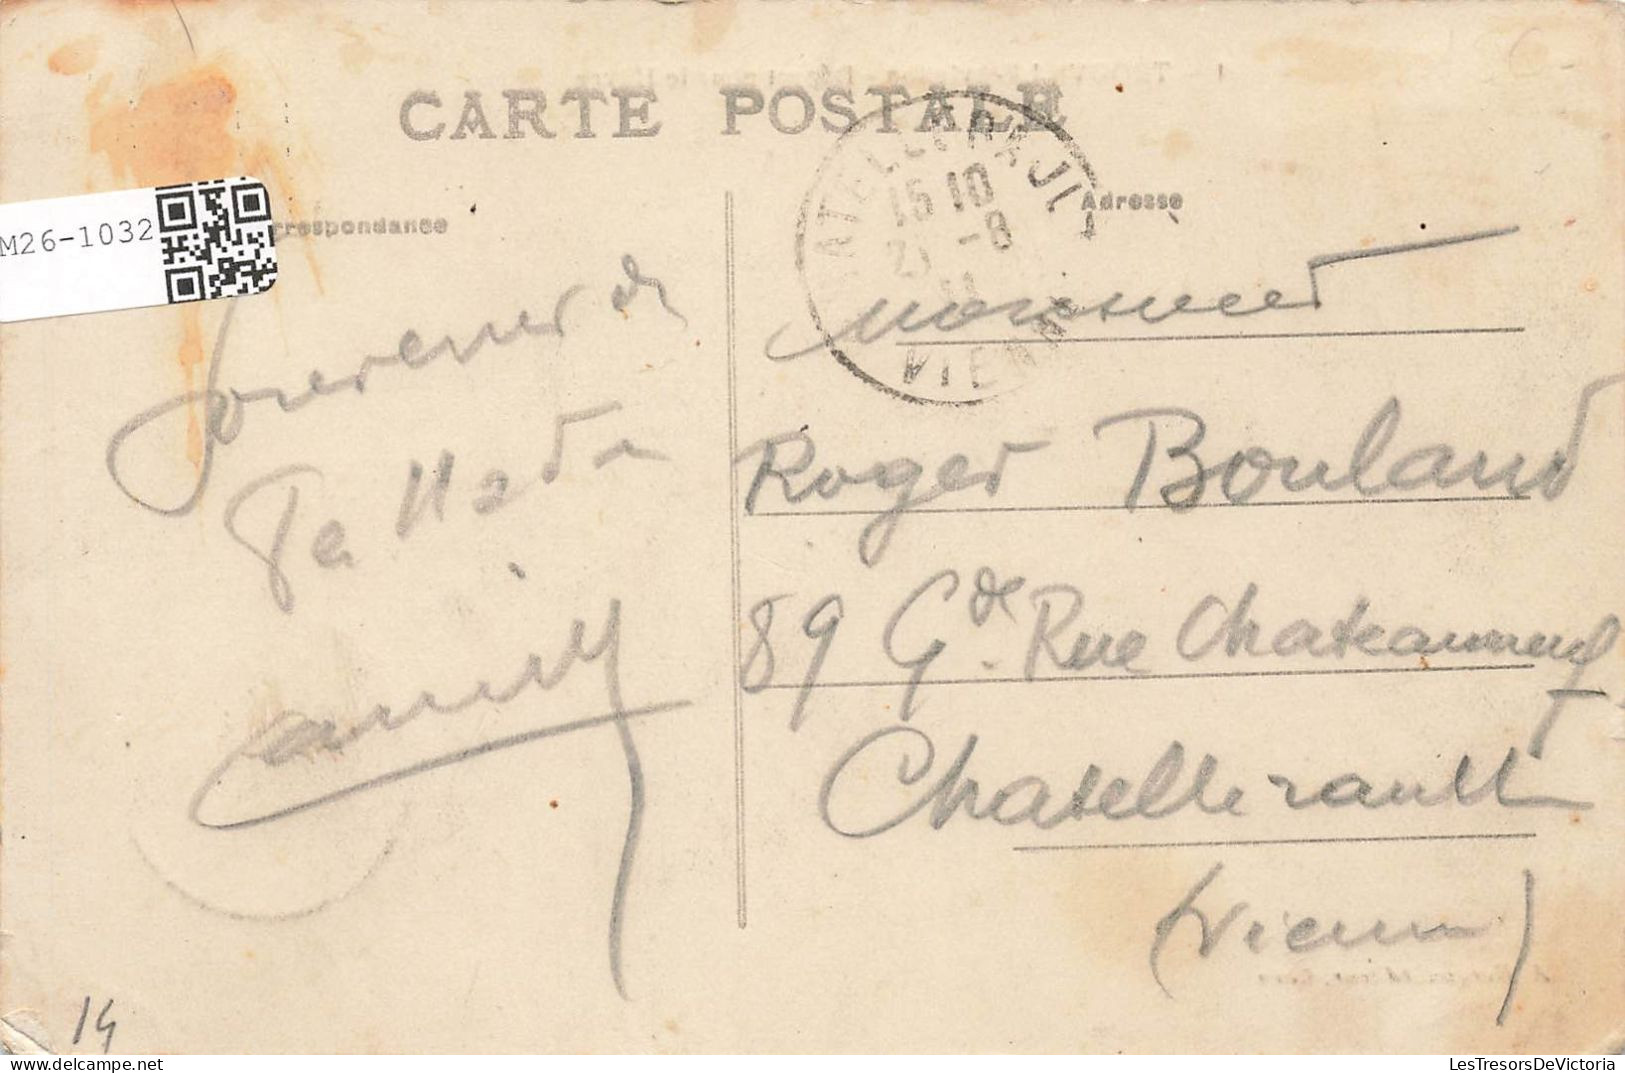 CARTE POSTALE
M26-1032
rrespondance
Adresse
15 10
-8
VIENNE
Souvenir de
Monsieur
Roger Bouland
89 Gde Rue Chateauneuf
Chatellerault
(Vienne)
14
LesTresorsDeVictoria